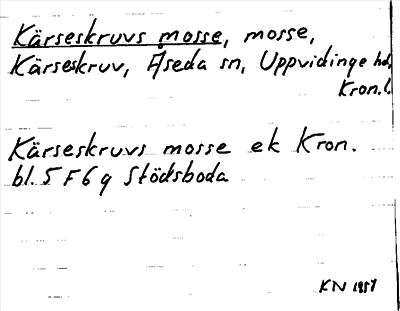 Kärseskruvs mosse, mosse,
Kärseskruv, Åseda sn, Uppvidinge hd,
Kron.l.
Kärseskruvs mosse ek Kron.
bl. 5 F 6 g Stödsboda
KN 1951